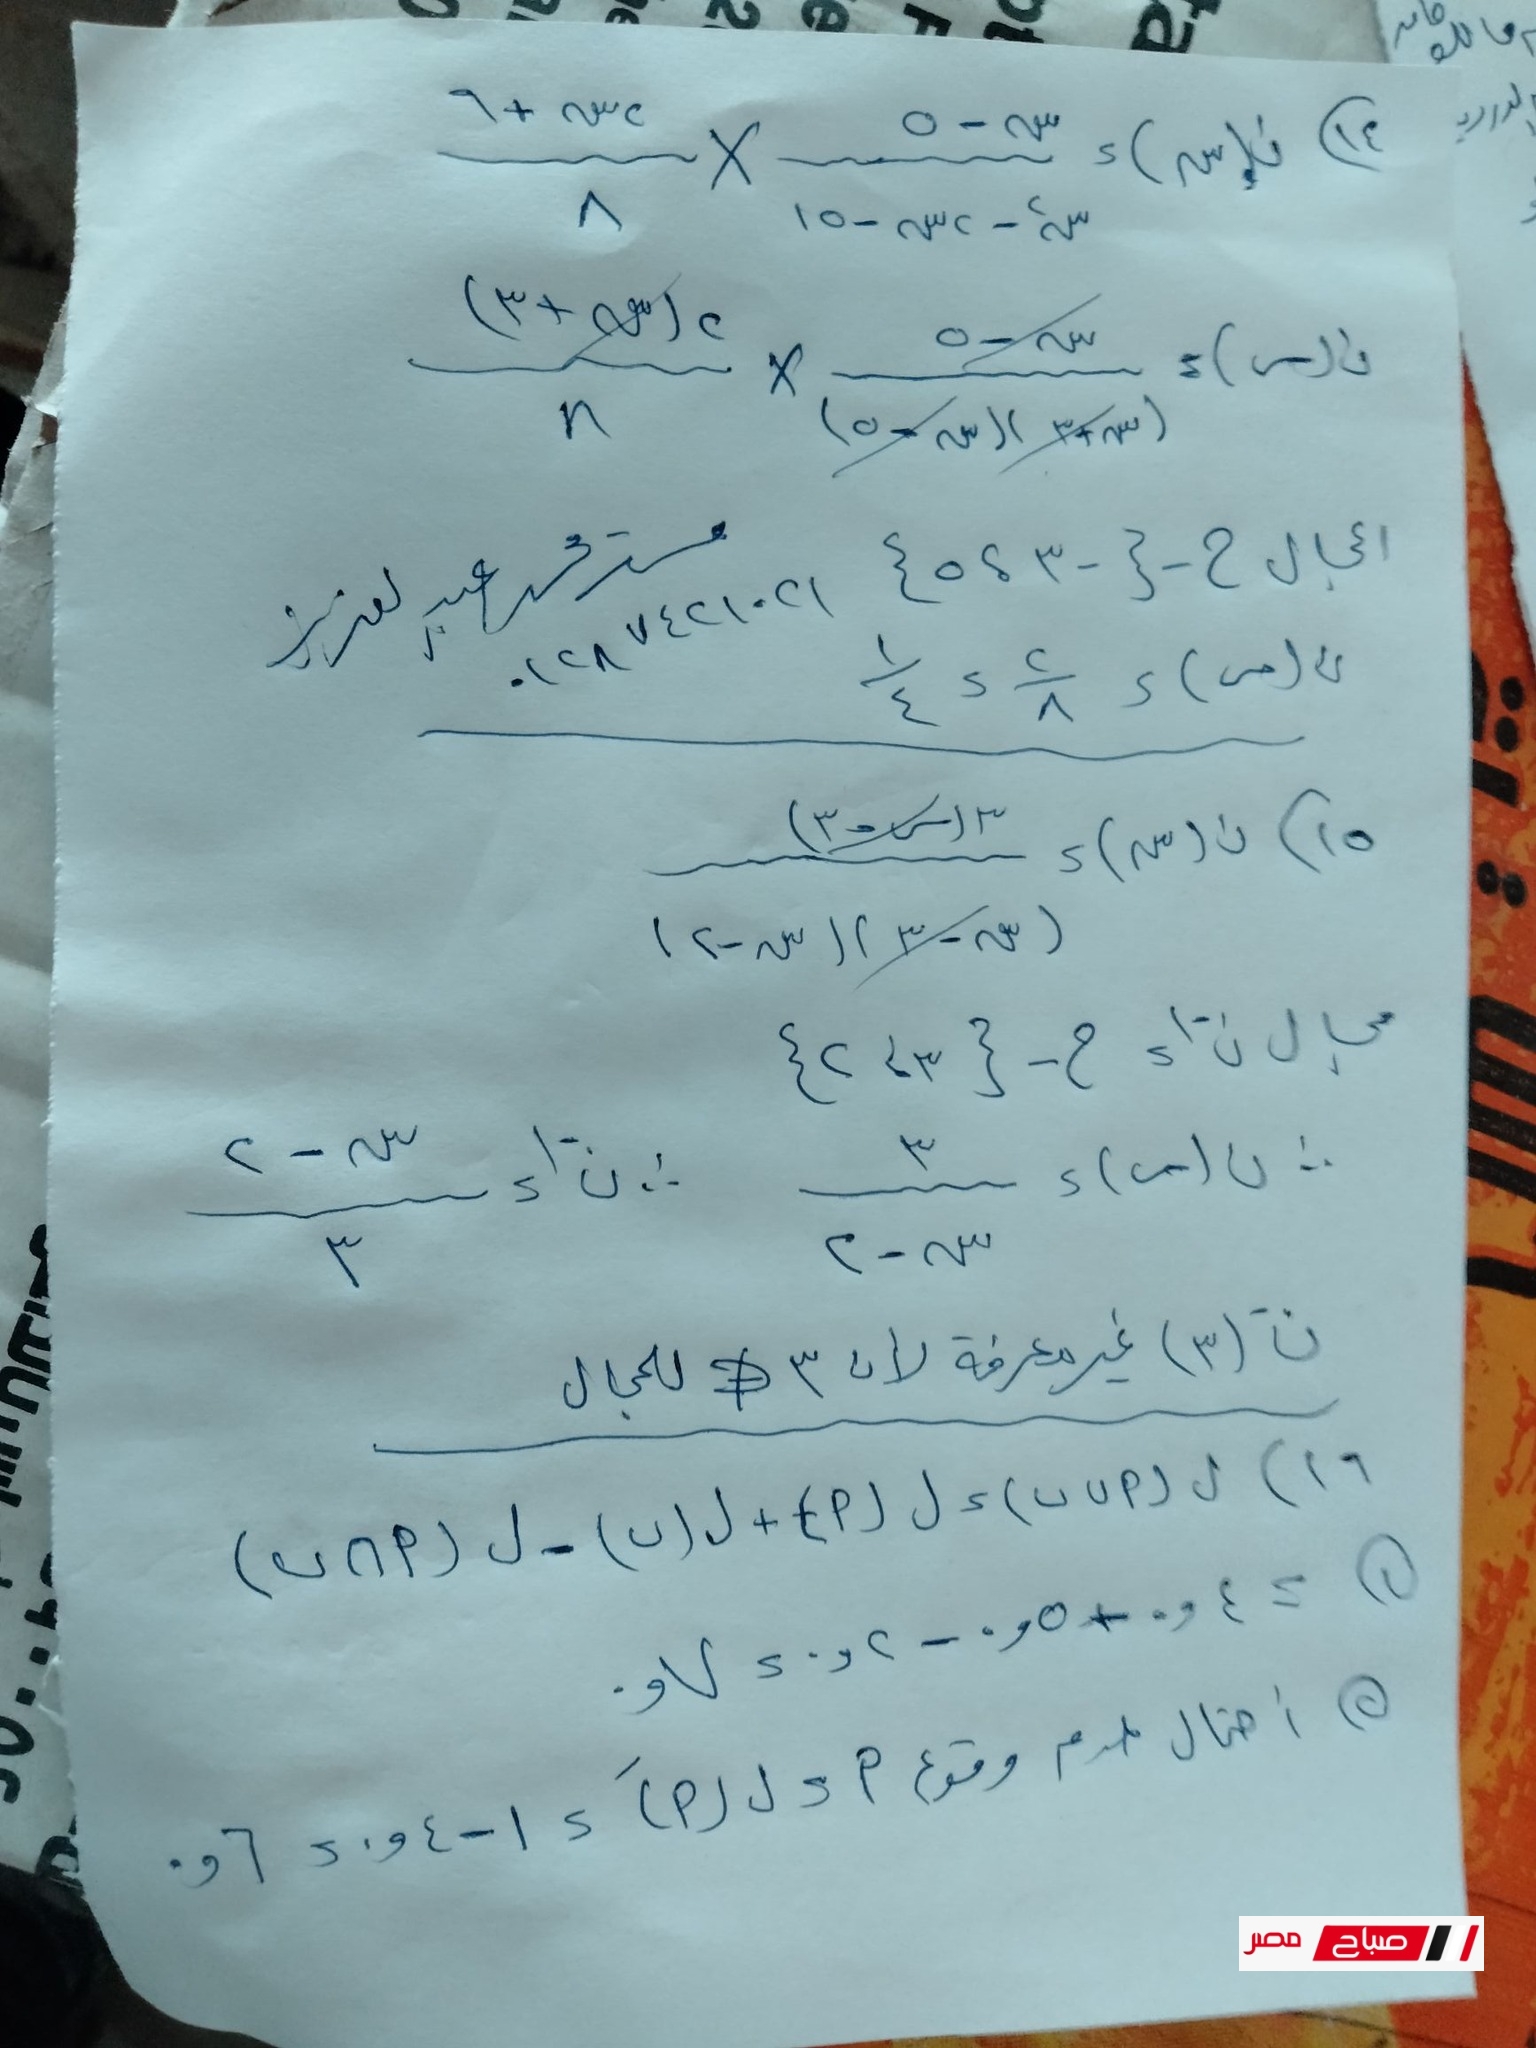 ١٤) ن(س) = (س - ٥)/(س² - ٢س - ١٥) × (٢س + ٦)/٨
ن(س) = (س - ٥)/((س + ٣)(س - ٥)) × ٢(س + ٣)/٨
المجال ح - {-٣، ٥}
مستر محمد عبد العزيز
ن(س) = ٢/٨ = ١/٤
١٥) ن(س) = ٣(س - ٣)/((س - ٣)(س - ٢))
مجال ن⁻¹ = ح - {٣، ٢}
∴ ن(س) = ٣/(س - ٢) ∴ ن⁻¹ = (س - ٢)/٣
ن⁻(٣) غير معرفة لأن ٣ ∌ للمجال
١٦) ل(P∪ب) = ل(P) + ل(ب) - ل(P∩ب)
① = ٤و٠ + ٥و٠ - ٢و٠ = ٧و٠
② احتمال عدم وقوع P = ل(P)َ = ١ - ٤و٠ = ٦و٠
صباح مصر